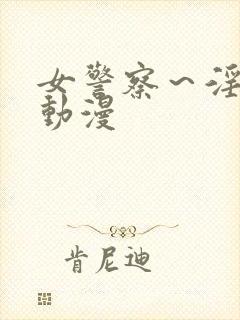 女警察～淫
動漫
肯尼迪